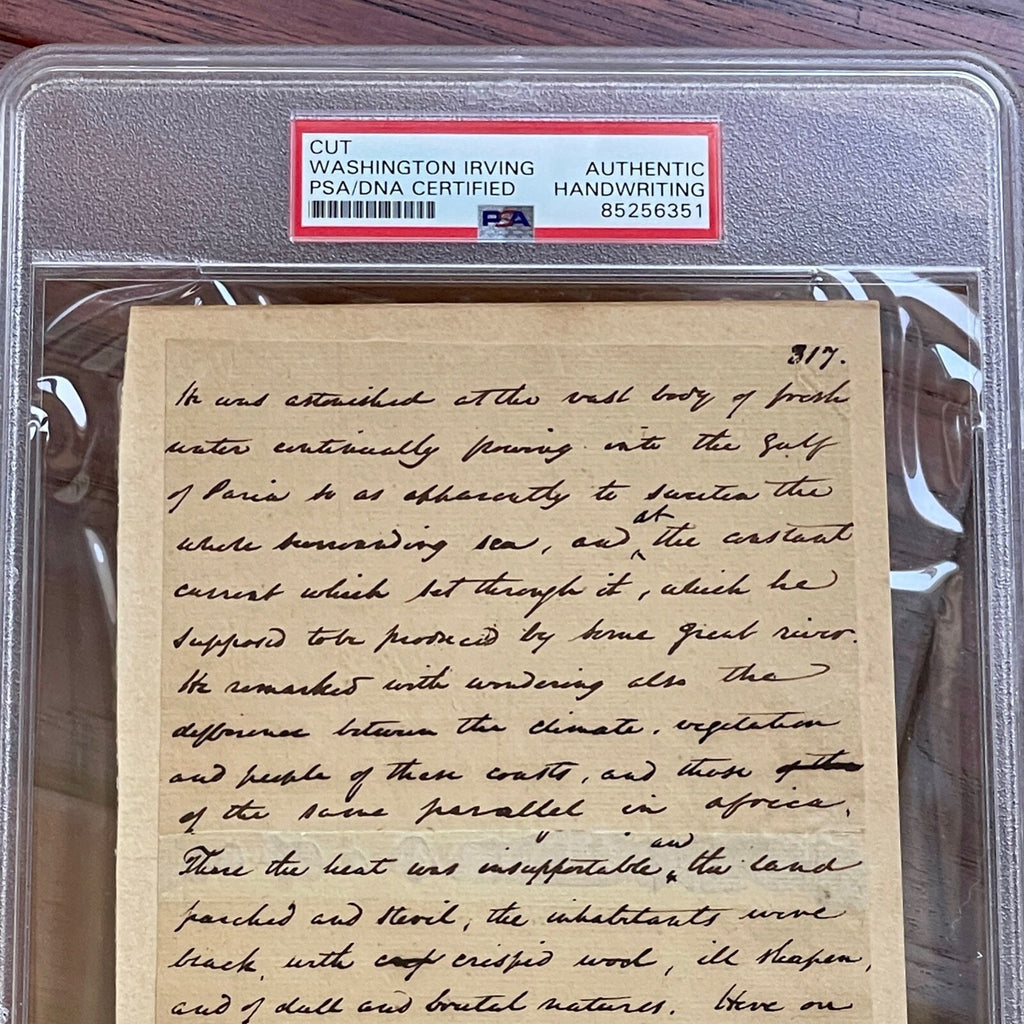 CUT
WASHINGTON IRVING AUTHENTIC
PSA/DNA CERTIFIED HANDWRITING
PSA 85256351
317.
He was astonished at the vast body of fresh
water continually flowing into the Gulf
of Paria so as apparently to sweeten the
whole surrounding sea, and at the constant
current which set through it, which he
supposed to be produced by some great river.
He remarked with wondering also the
difference between the climate, vegetation
and people of these coasts, and those of the
of the same parallel in africa.
There the heat was insupportable and the land
parched and steril, the inhabitants were
black, with crisped wool, ill shapen,
and of dull and brutal natures. Here on